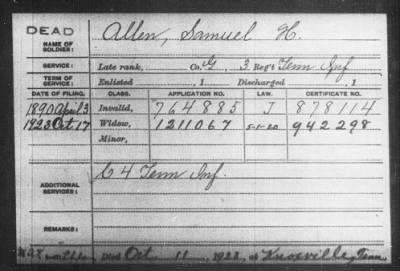 DEAD Allen, Samuel H.
NAME OF SOLDIER:
SERVICE: Late rank, Co. G, 3 Reg't Tenn Inf
TERM OF SERVICE: Enlisted , 1 Discharged , 1
DATE OF FILING. CLASS. APPLICATION NO. LAW. CERTIFICATE NO.
1890 April 3 Invalid, 764885 J 878114
1923 Oct. 17 Widow, 1211067 5-1-20 942298
Minor,
C 4 Tenn Inf.
ADDITIONAL SERVICES:
REMARKS:
Died Oct. 11, 1923, at Knoxville, Tenn